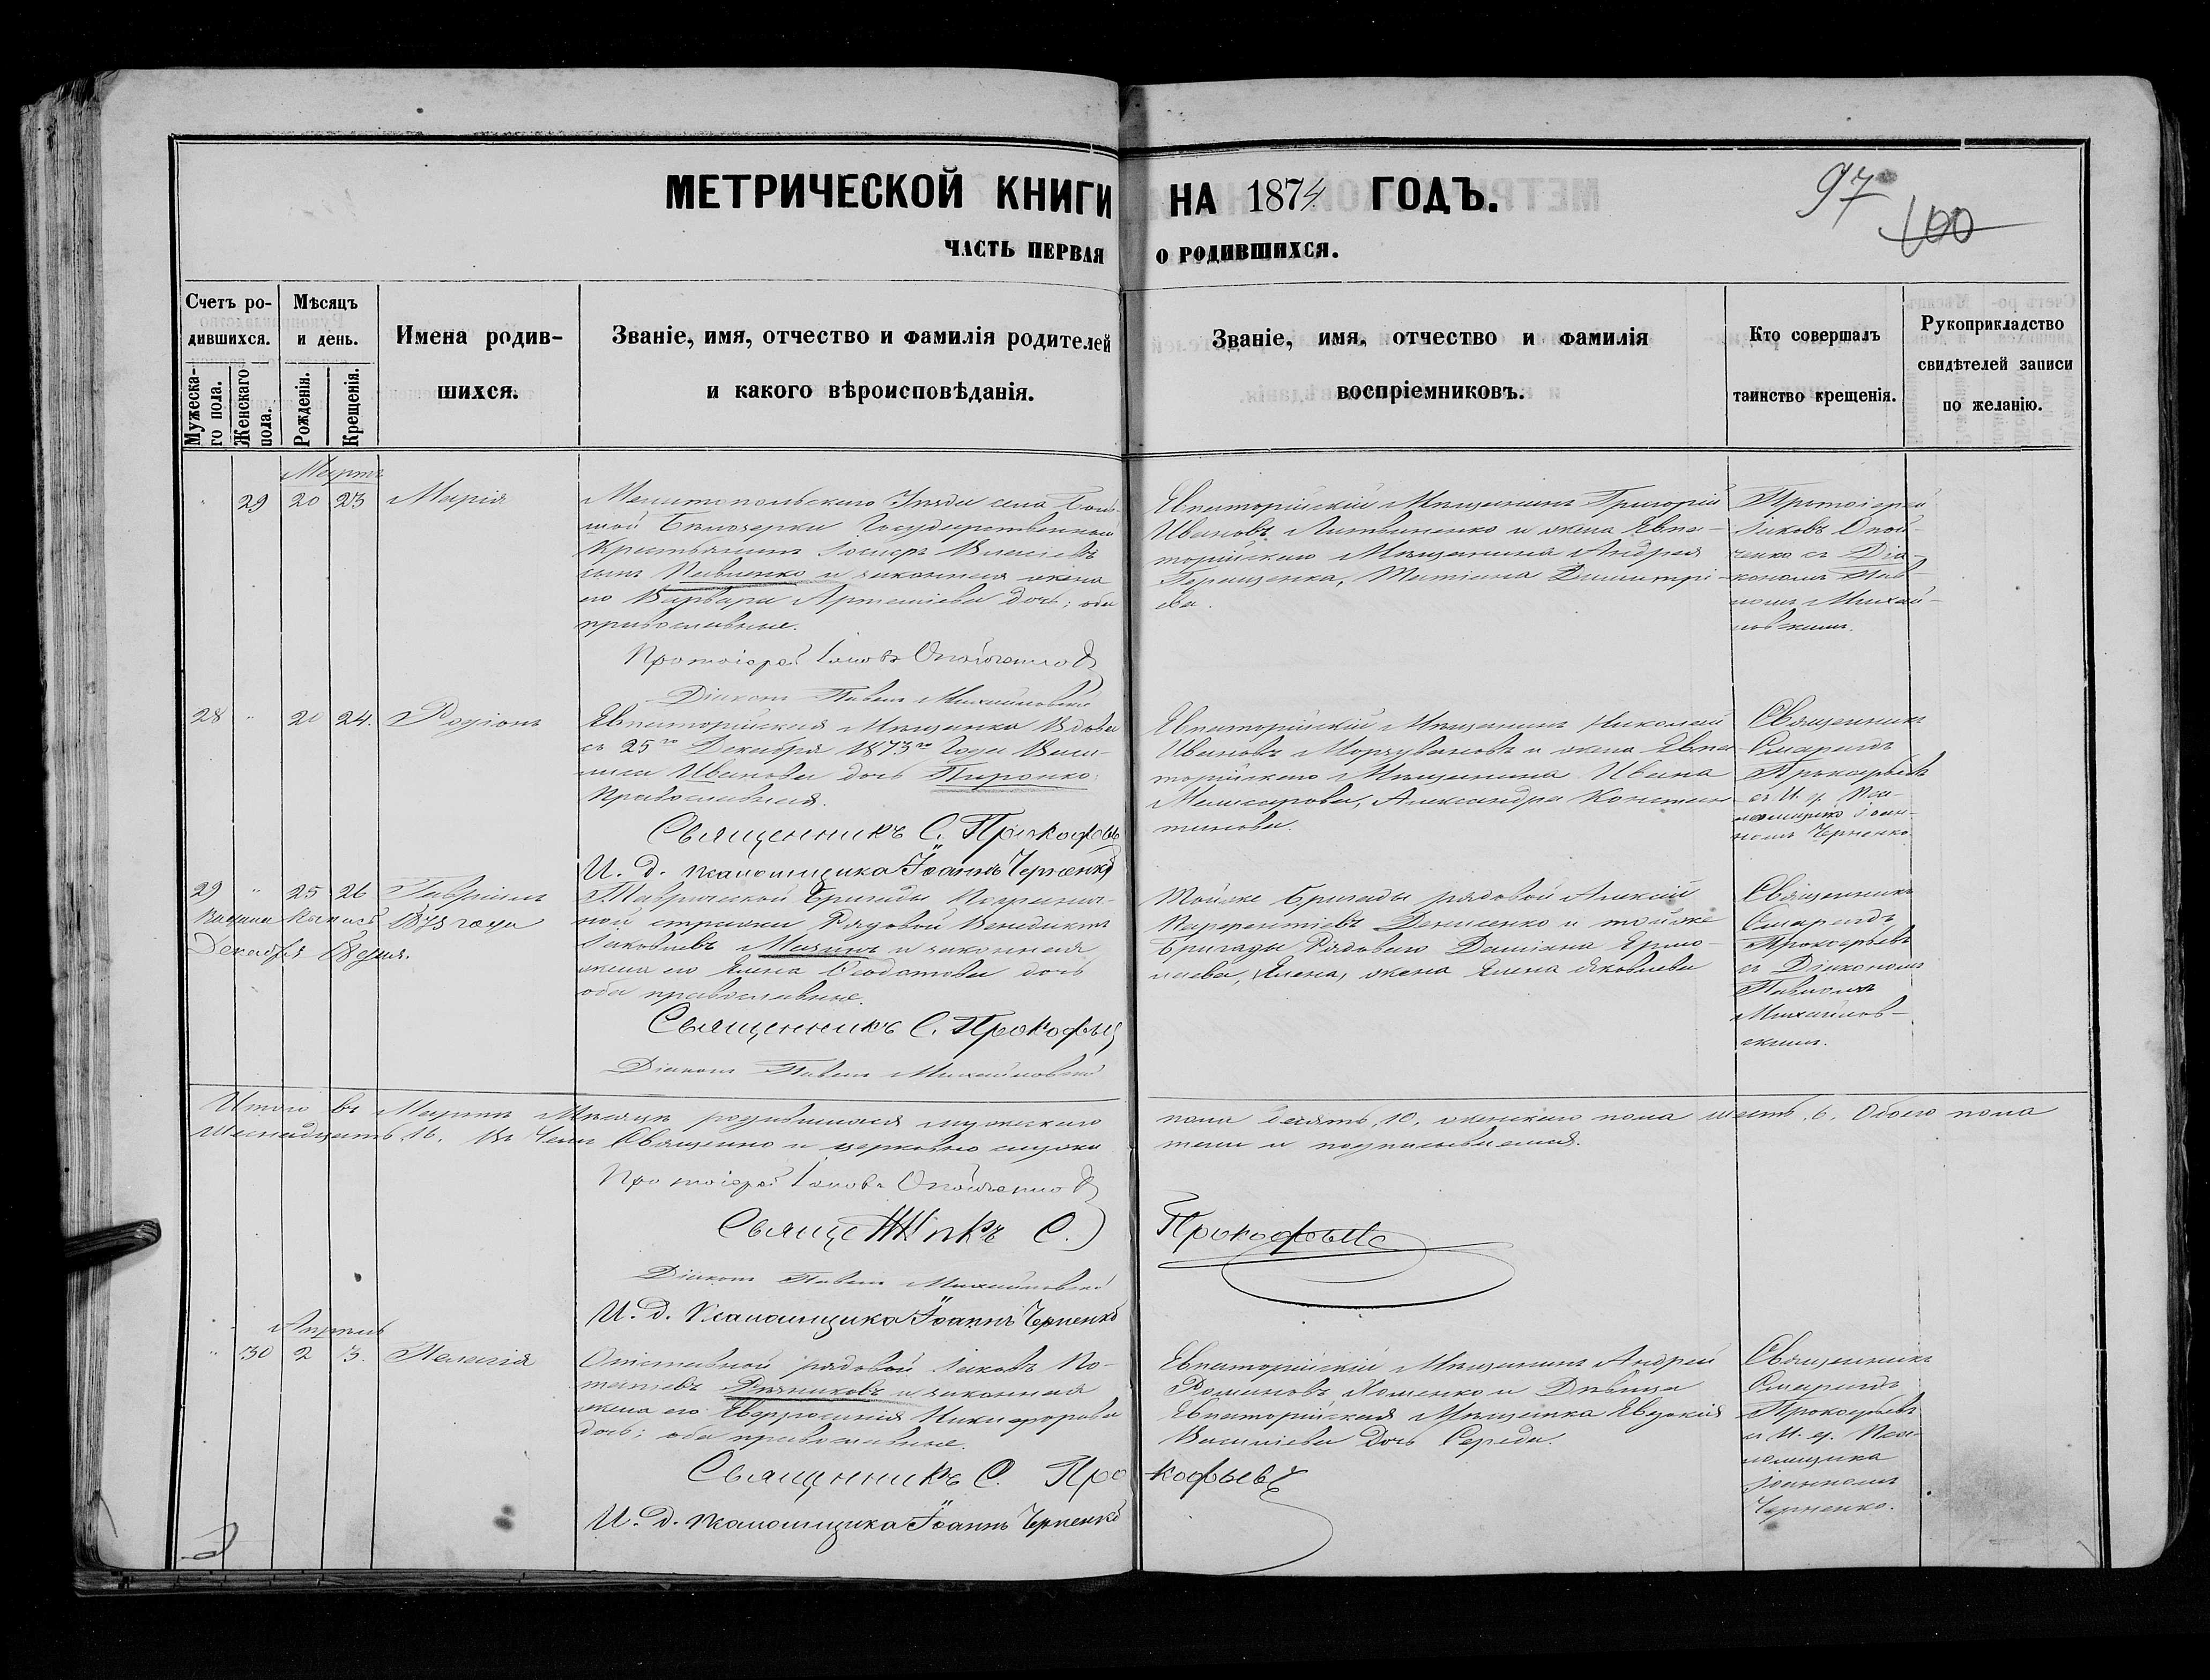 МЕТРИЧЕСКОЙ КНИГИ НА 1874 ГОДЪ.
97
100
ЧАСТЬ ПЕРВАЯ О РОДИВШИХСЯ.
Счетъ ро-
дившихся.
Мужеска-
го пола.
Женскаго
пола.
Мѣсяцъ
и день.
Рожденія.
Крещенія.
Имена родив-
шихся.
Званіе, имя, отчество и фамилія родителей
и какого вѣроисповѣданія.
Званіе, имя, отчество и фамилія
воспріемниковъ.
Кто совершалъ
таинство крещенія.
Рукоприкладство
свидѣтелей записи
по желанію.
Мартъ
29 20 23 Марія
Мелитопольскаго Уѣзда села Боль-
шой Бѣлозерки Государственной
Крестьянинъ
сынъ Павленко и законная жена
его Варвара Артеміева дочь; оба
православные.
Протоіерей Іаковъ
Діаконъ Павелъ Михайловскій
Евпаторійскій Мѣщанинъ Григорій
Ивановъ Литвиненко и жена Евпа-
торійскаго Мѣщанина Андрея
Геращенка, Татіана Димитрі-
ева.
Протоіерей
Іаковъ
съ Діа-
кономъ Пав-
ломъ Михай-
ловскимъ.
28 " 20 24. Родіонъ
Евпаторійская Мѣщанка Вдова
съ 25го Декабря 1873го Года Васи-
лиса Иванова дочь
Православная.
Священникъ С. Прокофьевъ
И. д. псаломщика Іоаннъ Черненко
Евпаторійскій Мѣщанинъ Николай
Ивановъ и жена Евпа-
торійскаго Мѣщанина Ивана
Александра Констан-
тинова.
Священникъ
Смарагдъ
Прокофьевъ
съ И. д. Пса-
ломщика Іоан-
номъ Черненко
29 " 25 26 Гавріилъ
1873 года
Декабря
Таврической Бригады Погранич-
ной стражи Рядовой Венедиктъ
Іаковлевъ и законная
жена его Елена Ѳеодотова дочь
оба православные.
Священникъ С. Прокофьевъ
Діаконъ Павелъ Михайловскій
Тойже Бригады рядовой Алексій
Денисенко и тойже
Бригады Рядоваго Даміана Ермо-
лаева, жена Елена Яковлева
Священникъ
Смарагдъ
Прокофьевъ
съ Діакономъ
Павломъ
Михайлов-
скимъ.
Итого въ Мартѣ Мѣсяцѣ родившихся мужескаго пола десять, 10, женскаго пола шесть, 6, Обоего пола
Шестнадцать, 16. Въ чемъ Священно и церковно служи тели и подписываемся.
Протоіерей Іаковъ
Священникъ С. Прокофьевъ
Діаконъ Павелъ Михайловскій
И. д. Псаломщика Іоаннъ Черненко
Апрѣль
" 30 2 3. Пелагія
Отставной рядовой Іаковъ По-
таповъ и законная
жена его Евфросинія Никифорова
дочь; оба православные.
Священникъ С. Прокофьевъ
И. д. псаломщика Іоаннъ Черненко
Евпаторійскій Мѣщанинъ Андрей
Романовъ и Дѣвица
Евпаторійская Мѣщанка Евдокія
Василіева Дочь Середа.
Священникъ
Смарагдъ
Прокофьевъ
съ И. д. Пса-
ломщика
Іоанномъ
Черненко.